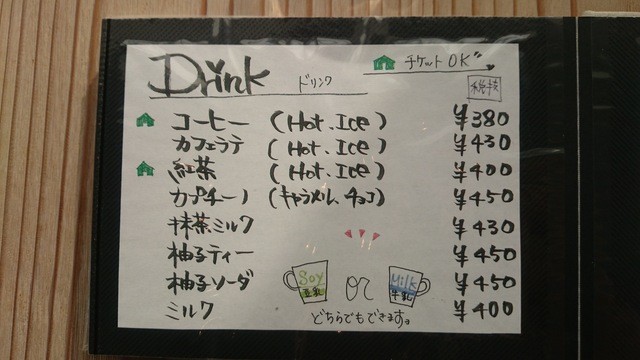 Drink ドリンク チケットOK
税抜
コーヒー (Hot. Ice) ¥380
カフェラテ (Hot. Ice) ¥430
紅茶 (Hot. Ice) ¥400
カプチーノ (キャラメル、チョコ) ¥450
抹茶ミルク ¥430
柚子ティー ¥450
柚子ソーダ ¥450
ミルク ¥400
Soy 豆乳 or Milk 牛乳
どちらでもできます。